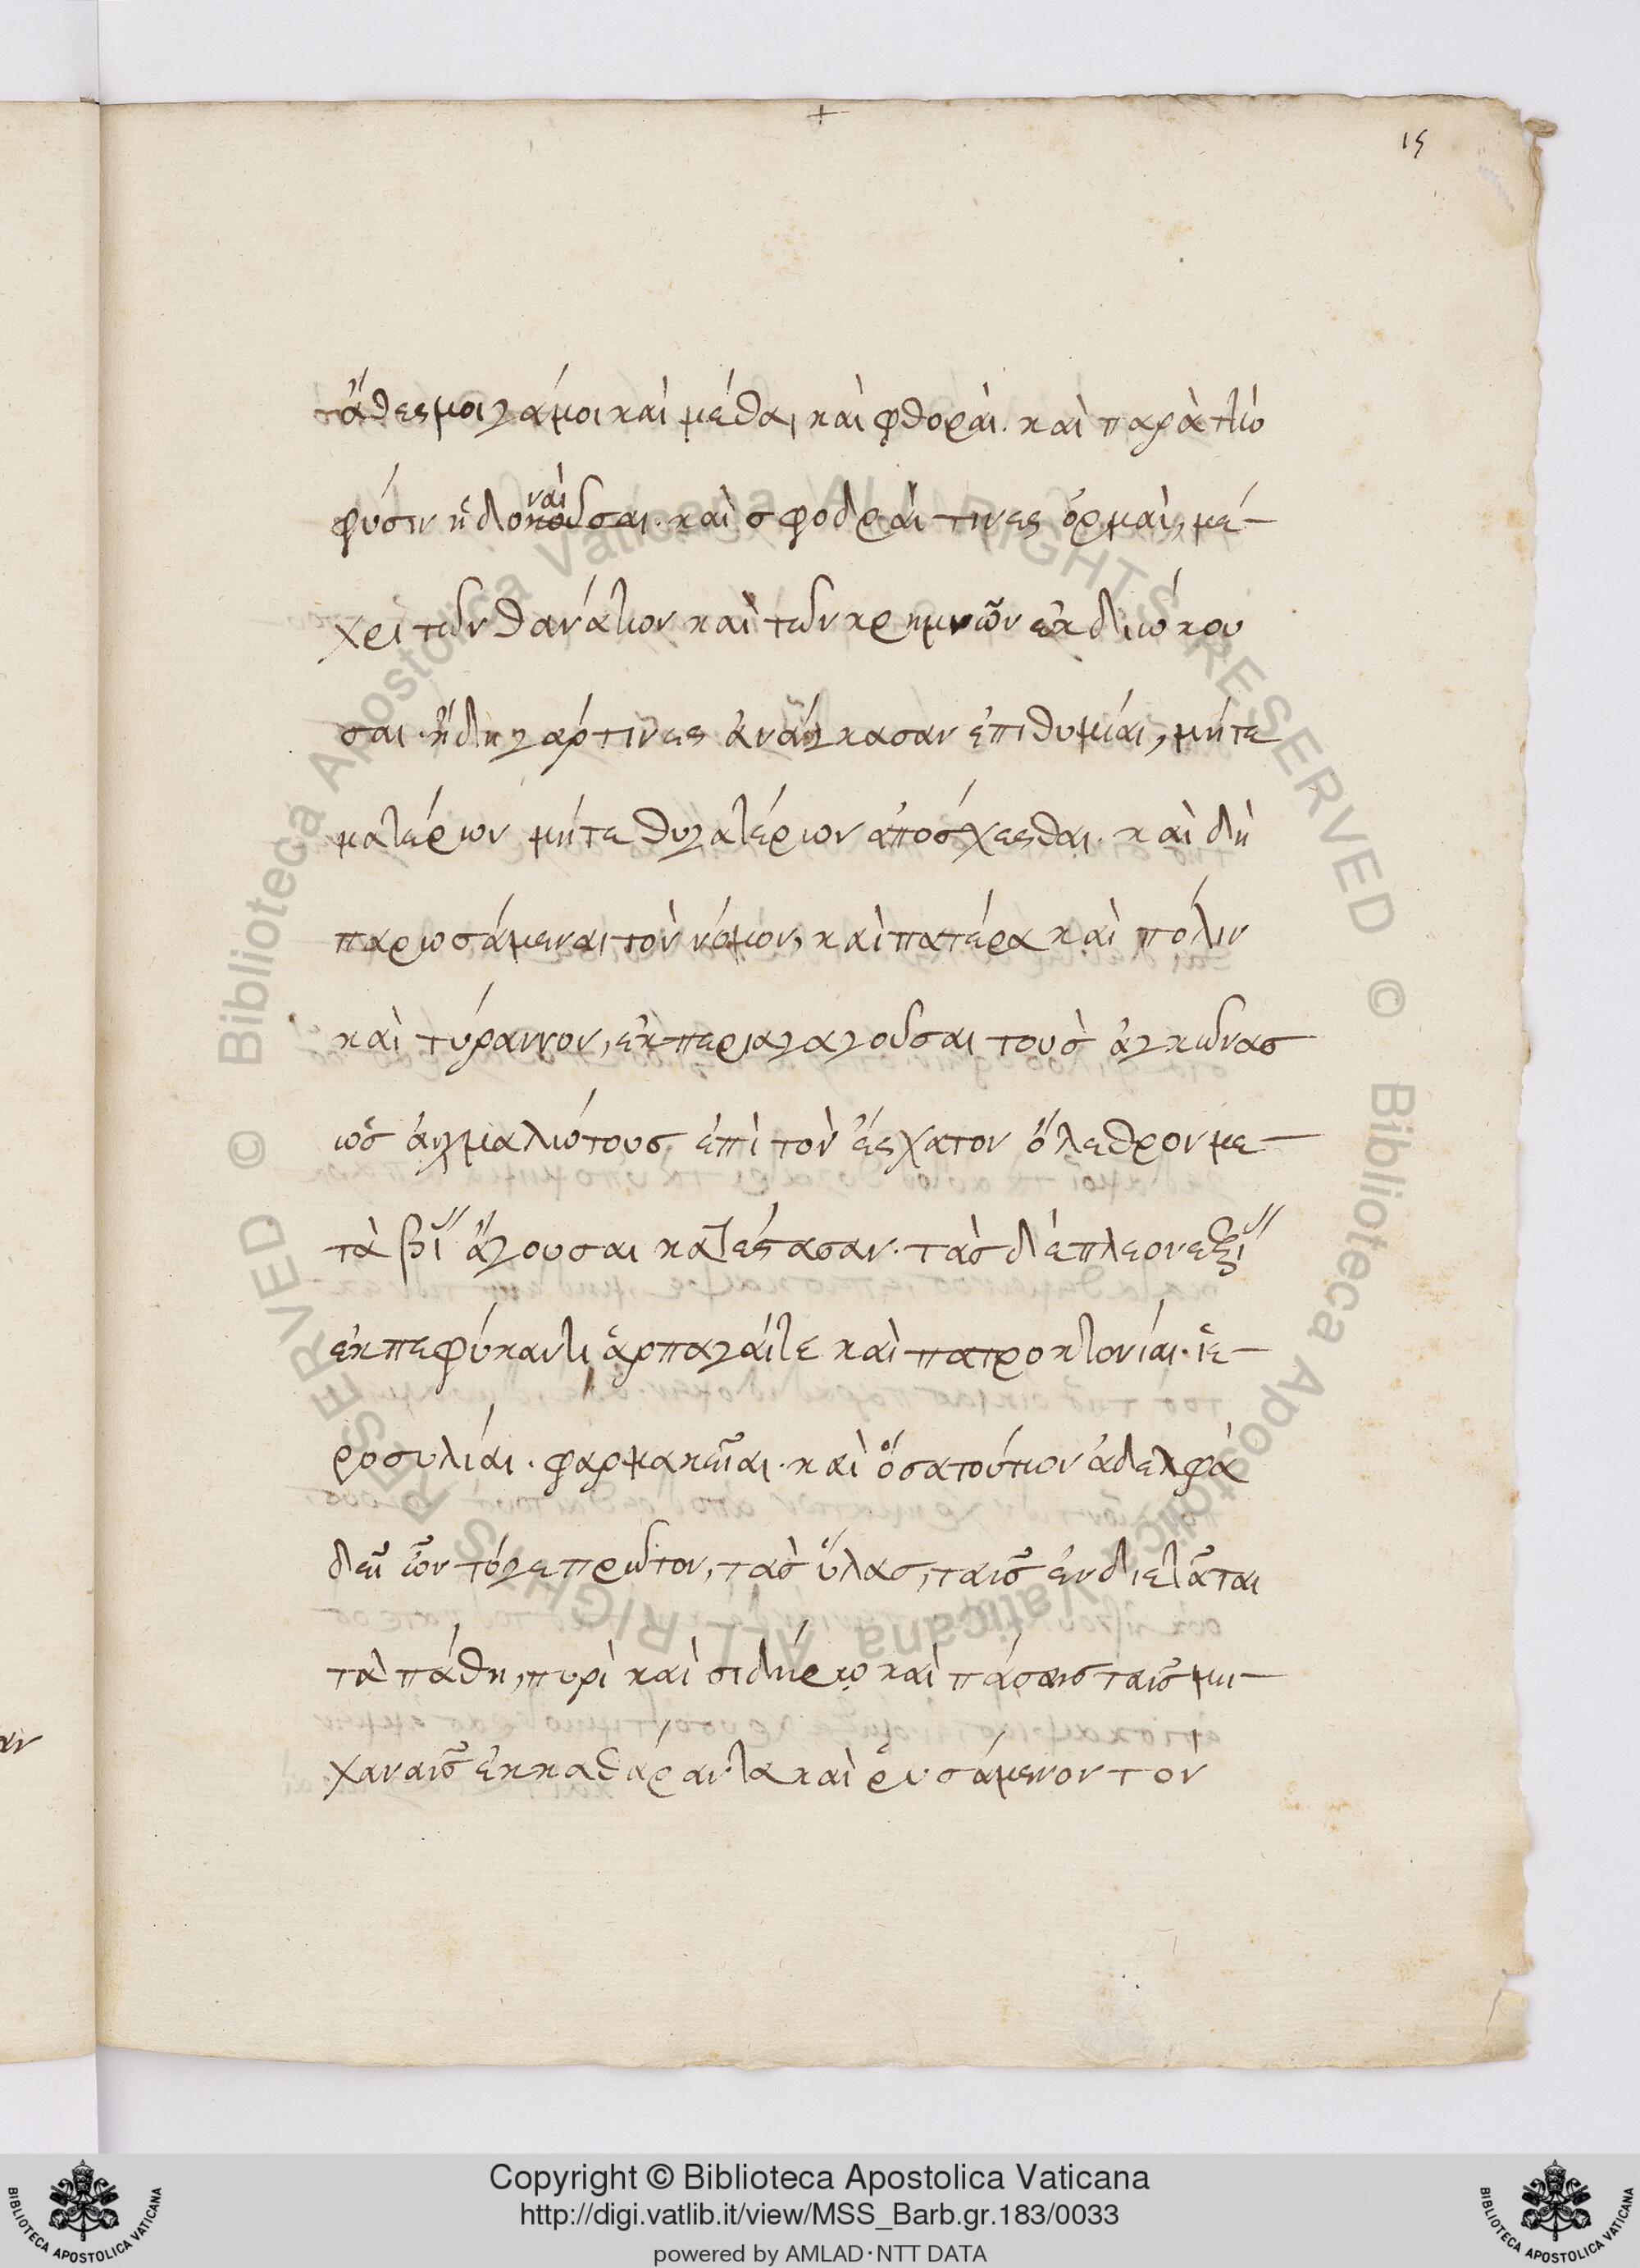 +
15
ἄθεσμοι γάμοι καὶ μέθαι καὶ φθοραί. καὶ παρὰ τὴν
φύσιν ἡδοναὶ. καὶ σφοδραί τινες ὁρμαὶ, μέ-
χρι τῶν θανάτων καὶ τῶν κρημνῶν ἐκδιώκου
σαι. ἤδη γάρ τινες ἀνάγκασαν ἐπιθυμίαι, μήτε
ματέρων μήτε θυγατέρων ἀπόσχεσθαι. καὶ δὴ
παρωσάμεναι τὸν νόμον, καὶ πατέρα καὶ πόλιν
καὶ τύραννον, ἐκπεριαγαγοῦσαι τοὺς ἀγκῶνας
ὡς αἰχμαλώτους ἐπὶ τὸν ἔσχατον ὄλεθρον με-
τὰ βί〃 ἄγουσαι κατέστασαν. τᾶς δὲ πλεονεξί〃
ἐκπεφύκαντι ἁρπαγαί τε καὶ πατροκτονίαι. ἱε-
ροσυλίαι. φαρμακεῖαι. καὶ ὅσα τούτων ἀδελφά
δεῖ ὦν τόγε πρῶτον, τὰς ὕλας, ταῖς ἐνδιετᾶται
τὰ πάθη, πυρὶ καὶ σιδήρῳ καὶ πάσαις ταῖς μη-
χαναῖς ἐκκαθάραντα καὶ ῥυσάμενον τὸν
αν
Copyright © Biblioteca Apostolica Vaticana
http://digi.vatlib.it/view/MSS_Barb.gr.183/0033
powered by AMLAD·NTT DATA
BIBLIOTECA APOSTOLICA VATICANA
BIBLIOTECA APOSTOLICA VATICANA
© Biblioteca Apostolica Vaticana ALL RIGHTS RESERVED © Biblioteca Apostolica Vaticana ALL RIGHTS RESERVED